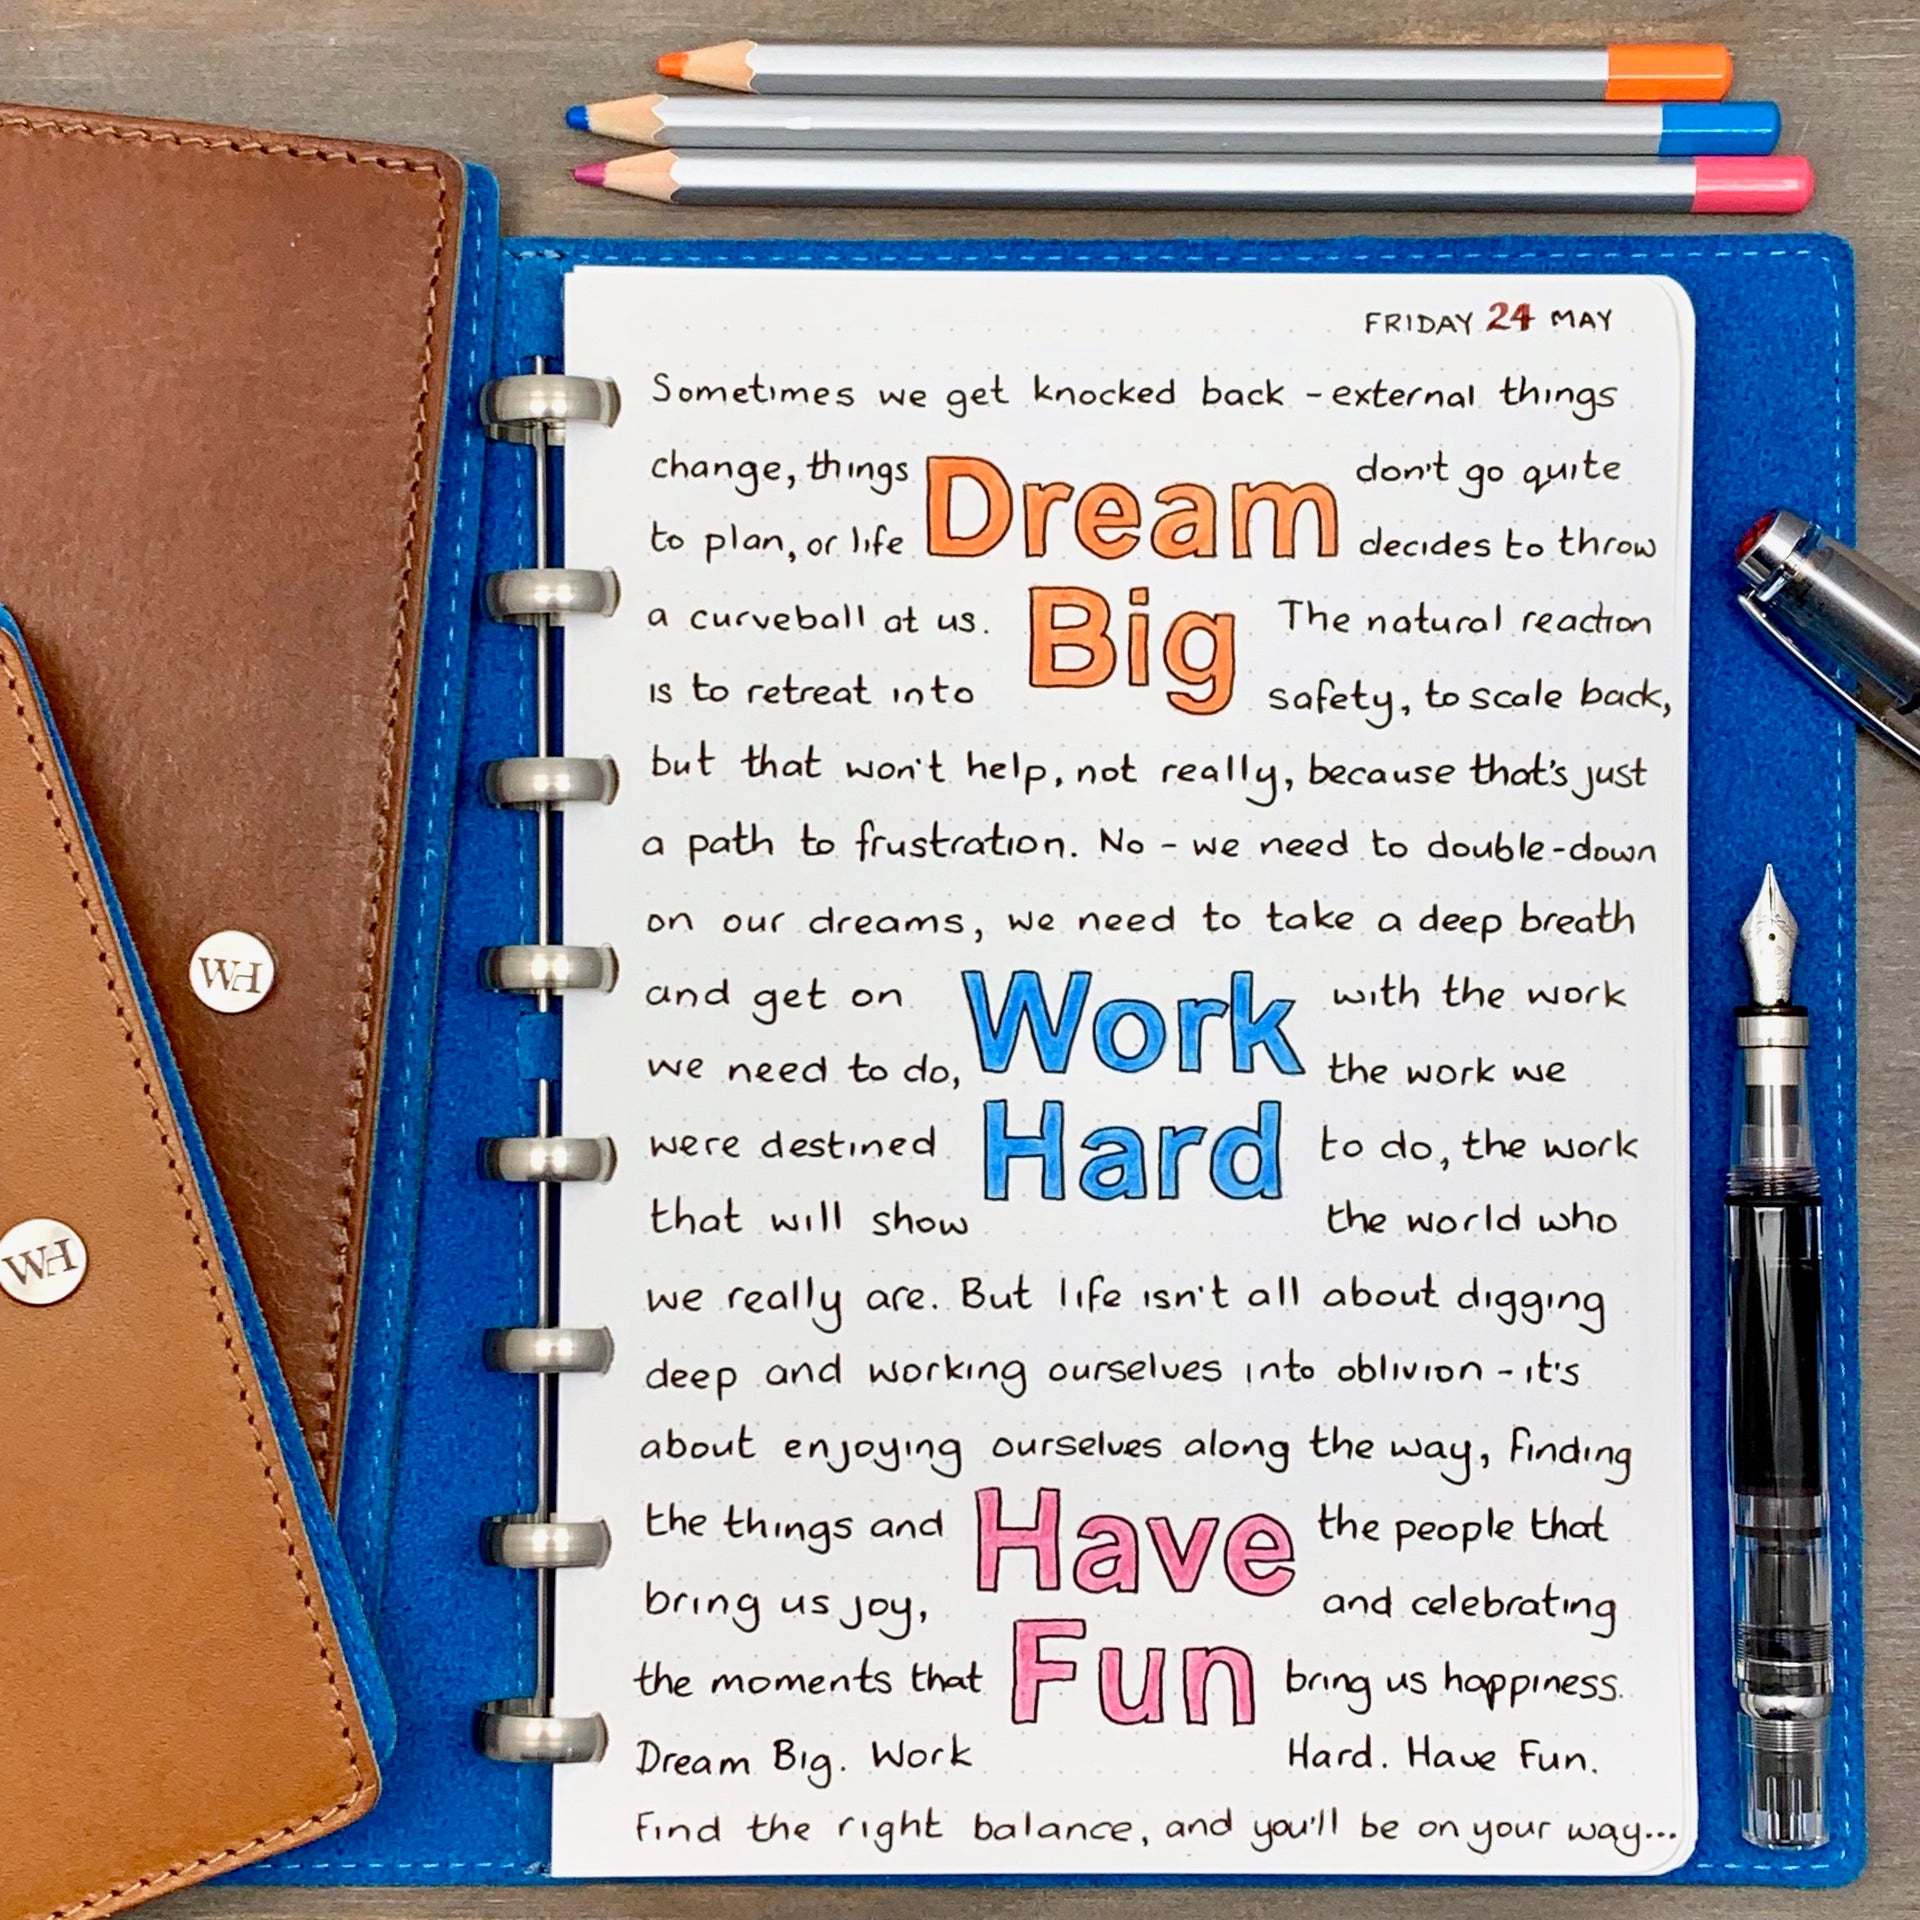 FRIDAY 24 MAY
Sometimes we get knocked back - external things
change, things don't go quite
to plan, or life decides to throw
a curveball at us. The natural reaction
is to retreat into safety, to scale back,
Dream
Big
but that won't help, not really, because that's just
a path to frustration. No - we need to double-down
on our dreams, we need to take a deep breath
and get on with the work
we need to do, the work we
were destined to do, the work
that will show the world who
Work
Hard
we really are. But life isn't all about digging
deep and working ourselves into oblivion - it's
about enjoying ourselves along the way, finding
the things and the people that
bring us joy, and celebrating
the moments that bring us happiness.
Dream Big. Work Hard. Have Fun.
Have
Fun
Find the right balance, and you'll be on your way...
WH
WH